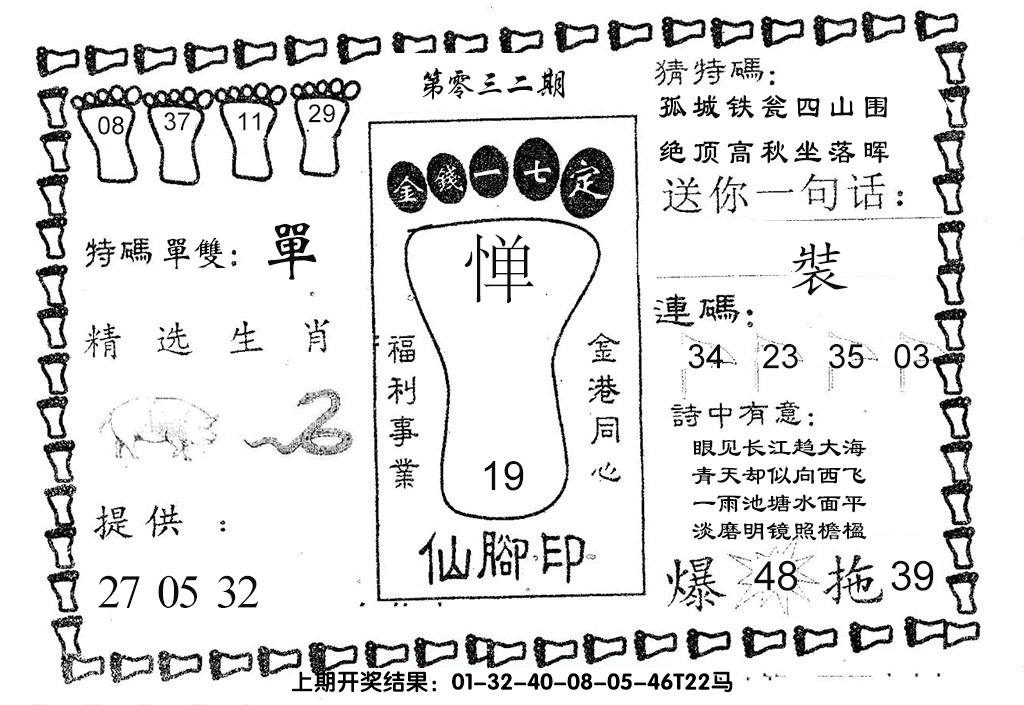 第零三二期
08 37 11 29
特碼單雙：單
精选生肖
提供：
27 05 32
金錢一七定
惮
福利事業
金港同心
19
仙腳印
猜特碼：
孤城铁瓮四山围
绝顶高秋坐落晖
送你一句话：
裝
連碼：
34 23 35 03
詩中有意：
眼见长江趋大海
青天却似向西飞
一雨池塘水面平
淡磨明镜照檐楹
爆 48 拖 39
上期开奖结果：01-32-40-08-05-46T22马